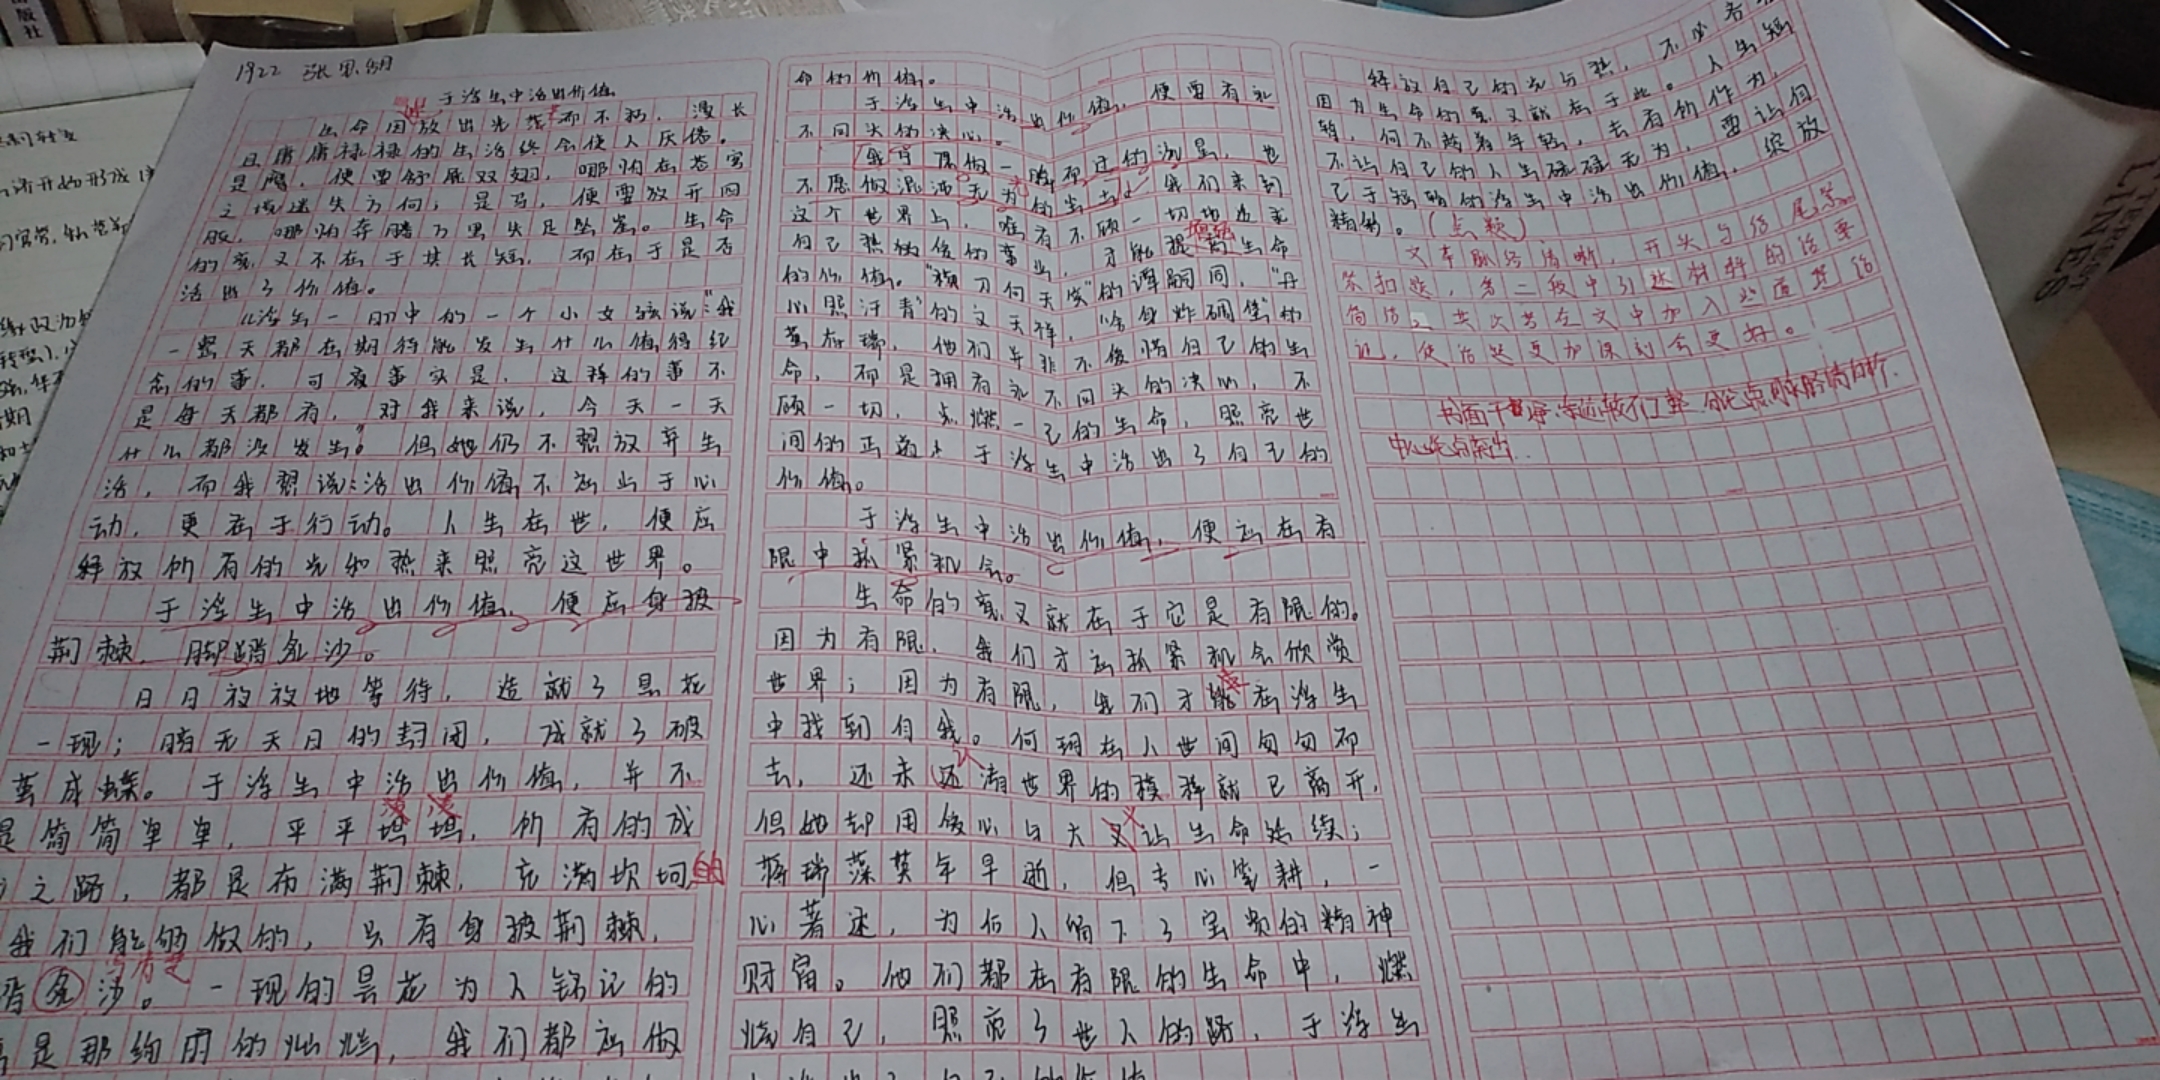 1922 张思明
于浮生中活出价值
生命因放出光芒而不朽，漫长
且庸庸禄禄的生活终会使人厌倦。
是鹰，便要舒展双翅，哪怕在苍穹
之境迷失方向；是马，便要放开四
肢，哪怕奔腾万里失足坠崖。生命
的意义不在于其长短，而在于是否
活出了价值。
《浮生一日》中的一个小女孩说："我
一整天都在期待能发生什么值得纪
念的事，可寂寞实是，这样的事不
是每天都有，对我来说，今天一天
什么都没发生。"但她仍不想放弃生
活，而我想说：活出价值不应止于心
动，更在于行动。人生在世，便应
释放所有的光和热来照亮这世界。
于浮生中活出价值，便应身披
荆棘，脚踏流沙。
日日夜夜地等待，造就了昙花
一现；暗无天日的封闭，成就了破
茧成蝶。于浮生中活出价值，并不
是简简单单，平平坦坦，所有的成
之路，都是布满荆棘，充满坎坷的
我们能够做的，只有身披荆棘，
沙。一现的昙花为人铭记的
是那绚丽的灿烂，我们都应做
命的价值。
于浮生中活出价值，便要有永
不回头的决心。
我宁愿做一瞬而过的流星，也
不愿做混沌无为的尘土，我们来到
这个世界上，唯有不顾一切地追求
自己热切的事业，才能提高生命
的价值。"横刀向天笑"的谭嗣同，"丹
心照汗青"的文天祥，"舍身炸碉堡"的
董存瑞，他们并非不爱惜自己的生
命，而是拥有永不回头的决心，不
顾一切，点燃一己的生命，照亮世
间的正道，于浮生中活出了自己的
价值。
于浮生中活出价值，便应在有
限中抓紧机会。
生命的意义就在于它是有限的。
因为有限，我们才应抓紧机会欣赏
世界；因为有限，我们才能在浮生
中找到自我。何玥在人世间匆匆而
去，还未还清世界的模样就已离开，
但她却用爱心与大义让生命延续；
蒋瑞藻英年早逝，但专心笔耕，一
心著述，为后人留下了宝贵的精神
财富。他们都在有限的生命中，燃
烧自己，照亮了世人的路，于浮生
释放自己的光与热，不必吝
因为生命的意义就在于此。人生短
暂，何不趁着年轻，去有所作为，
不让自己的人生碌碌无为，要让自
己于短暂的浮生中活出价值，绽放
精彩。（点题）
文章脉络清晰，开头与结尾紧
紧扣题，第二段中引述材料的话要
简洁，其次若在文中加入些道理论
证，使话题更加深刻会更好。
书面干净，论述较有力，论点明晰清晰，
中心论点突出.